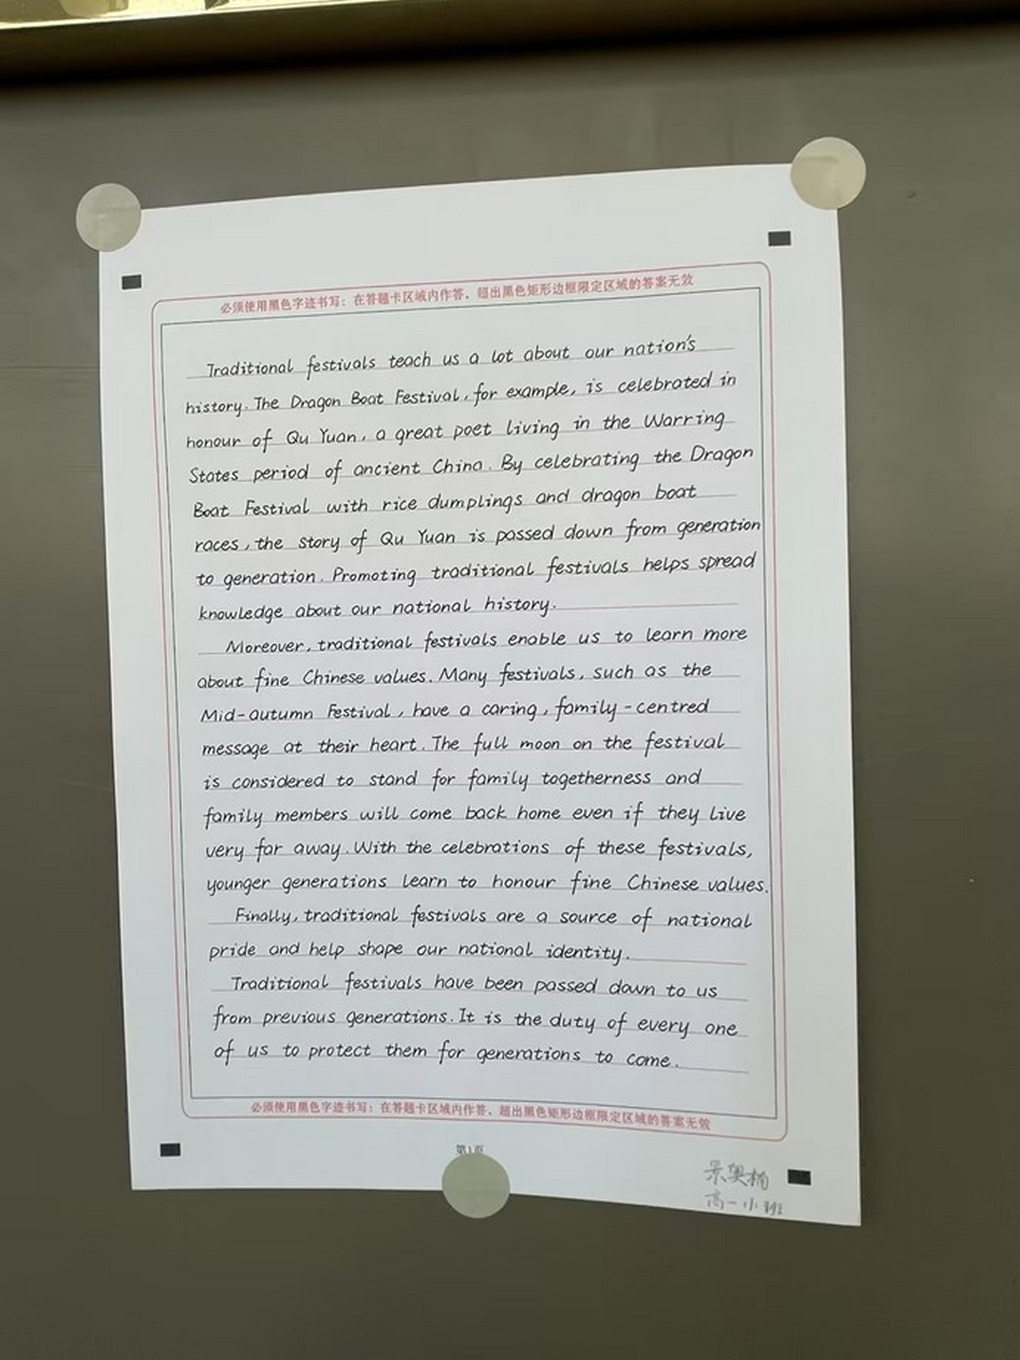 必须使用黑色字迹书写：在答题卡区域内作答，超出黑色矩形边框限定区域的答案无效
Traditional festivals teach us a lot about our nation's
history. The Dragon Boat Festival, for example, is celebrated in
honour of Qu Yuan, a great poet living in the Warring
States period of ancient China. By celebrating the Dragon
Boat Festival with rice dumplings and dragon boat
races, the story of Qu Yuan is passed down from generation
to generation. Promoting traditional festivals helps spread
knowledge about our national history.
Moreover, traditional festivals enable us to learn more
about fine Chinese values. Many festivals, such as the
Mid-autumn Festival, have a caring, family-centred
message at their heart. The full moon on the festival
is considered to stand for family togetherness and
family members will come back home even if they live
very far away. With the celebrations of these festivals,
younger generations learn to honour fine Chinese values.
Finally, traditional festivals are a source of national
pride and help shape our national identity.
Traditional festivals have been passed down to us
from previous generations. It is the duty of every one
of us to protect them for generations to come.
必须使用黑色字迹书写：在答题卡区域内作答，超出黑色矩形边框限定区域的答案无效
第1页
景奥楠
高一小班